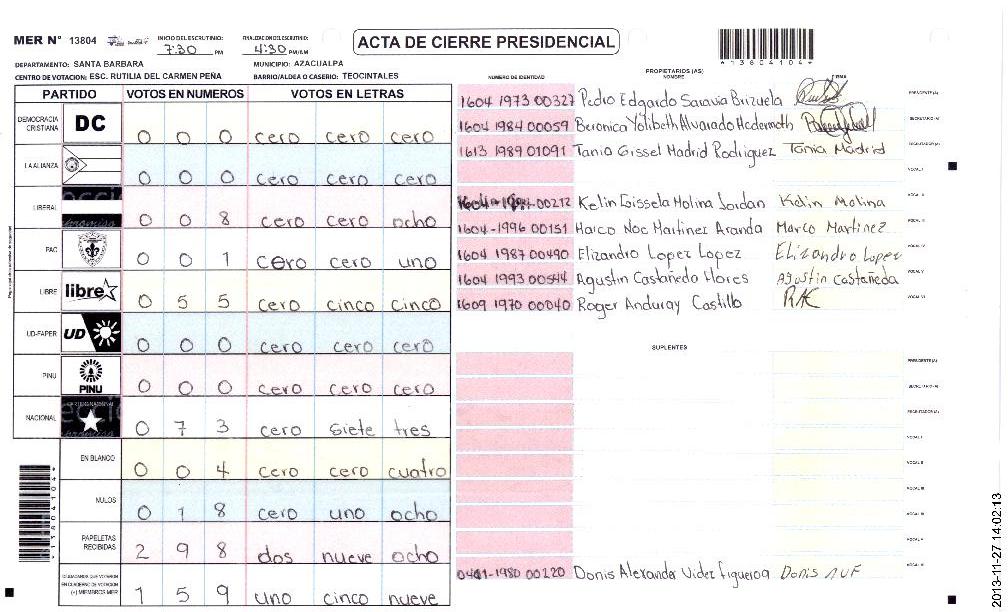 MER Nº 13804
INICIO DEL ESCRUTINIO: 7:30 PM
FINALIZACION DEL ESCRUTINIO: 4:30 PM/AM
ACTA DE CIERRE PRESIDENCIAL
*13804104*
DEPARTAMENTO: SANTA BARBARA
MUNICIPIO: AZACUALPA
CENTRO DE VOTACION: ESC. RUTILIA DEL CARMEN PEÑA
BARRIO/ALDEA O CASERIO: TEOCINTALES
PARTIDO VOTOS EN NUMEROS VOTOS EN LETRAS
DEMOCRACIA CRISTIANA DC 0 0 0 cero cero cero
LA ALIANZA 0 0 0 cero cero cero
LIBERAL 0 0 8 cero cero ocho
PAC 0 0 1 cero cero uno
LIBRE libre 0 5 5 cero cinco cinco
UD-FAPER UD 0 0 0 cero cero cero
PINU PINU 0 0 0 cero cero cero
NACIONAL 0 7 3 cero siete tres
EN BLANCO 0 0 4 cero cero cuatro
NULOS 0 1 8 cero uno ocho
PAPELETAS RECIBIDAS 2 9 8 dos nueve ocho
CIUDADANOS QUE VOTARON EN CUADERNO DE VOTACION (+) MIEMBROS MER 1 5 9 uno cinco nueve
*13804104*
PROPIETARIOS (AS)
NUMERO DE IDENTIDAD NOMBRE FIRMA
1604 1973 00327 Pedro Edgardo Saravia Brizuela PRESIDENTE(A)
1604 1984 00059 Beronica Yolibeth Alvarado SECRETARIO(A)
1613 1989 01091 Tania Gissel Madrid Rodriguez Tania Madrid ESCRUTADOR(A)
VOCAL I
00212 Kelin Loissela Molina Jordan Kelin Molina VOCAL II
1604-1996 00151 Marco Noe Martinez Aranda Marco Martinez VOCAL III
1604 1987 00490 Elizandro Lopez Lopez Elizandro Lopez VOCAL IV
1604 1993 00544 Agustin Castañedo Flores Agustin Castañeda VOCAL V
1609 1970 00040 Roger Anduray Castillo RAC VOCAL VI
SUPLENTES
PRESIDENTE(A)
SECRETARIO(A)
ESCRUTADOR(A)
VOCAL I
VOCAL II
VOCAL III
VOCAL IV
VOCAL V
0401-1980 00220 Donis Alexander Videz Figueroa Donis AVF VOCAL VI
2013-11-27 14:02:13